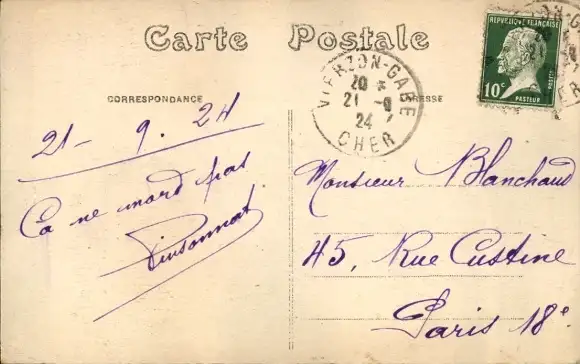 Carte Postale
CORRESPONDANCE
ADRESSE
RÉPUBLIQUE FRANÇAISE
10c
POSTES
PASTEUR
VIERZON-GARE
20 *
21 -9
24
CHER
21 - 9. 24
Ça ne mord pas
Pinsonnat
Monsieur Blanchaud
45, Rue Custine
Paris 18e